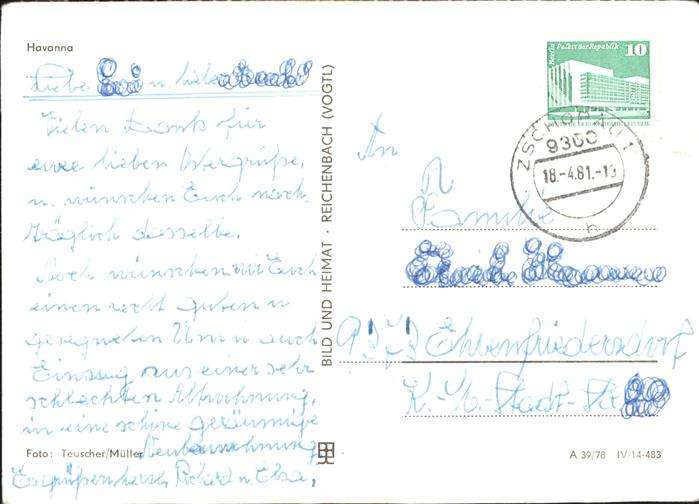 Havanna
Liebe u. liebe
Vielen Dank für
eure lieben Ostergrüße,
u. wünschen Euch nach-
träglich dasselbe.
Auch wünschen wir Euch
einen recht guten u.
gesegneten Um u. auch
Einzug aus einer sehr
schlechten Altwohnung,
in eine schöne geräumige
Neubauwohnung
Es grüßen herzl. Richard u. Elsa,
Foto: Teuscher/Müller
BILD UND HEIMAT · REICHENBACH (VOGTL)
Berlin Palast der Republik 10
ZSCHOPAU 1
9360
18.-4.81.-19
h
An
Familie
Ehrenfriedersdorf
K.-M.-Stadt-Str.
A 39/78 IV-14-483